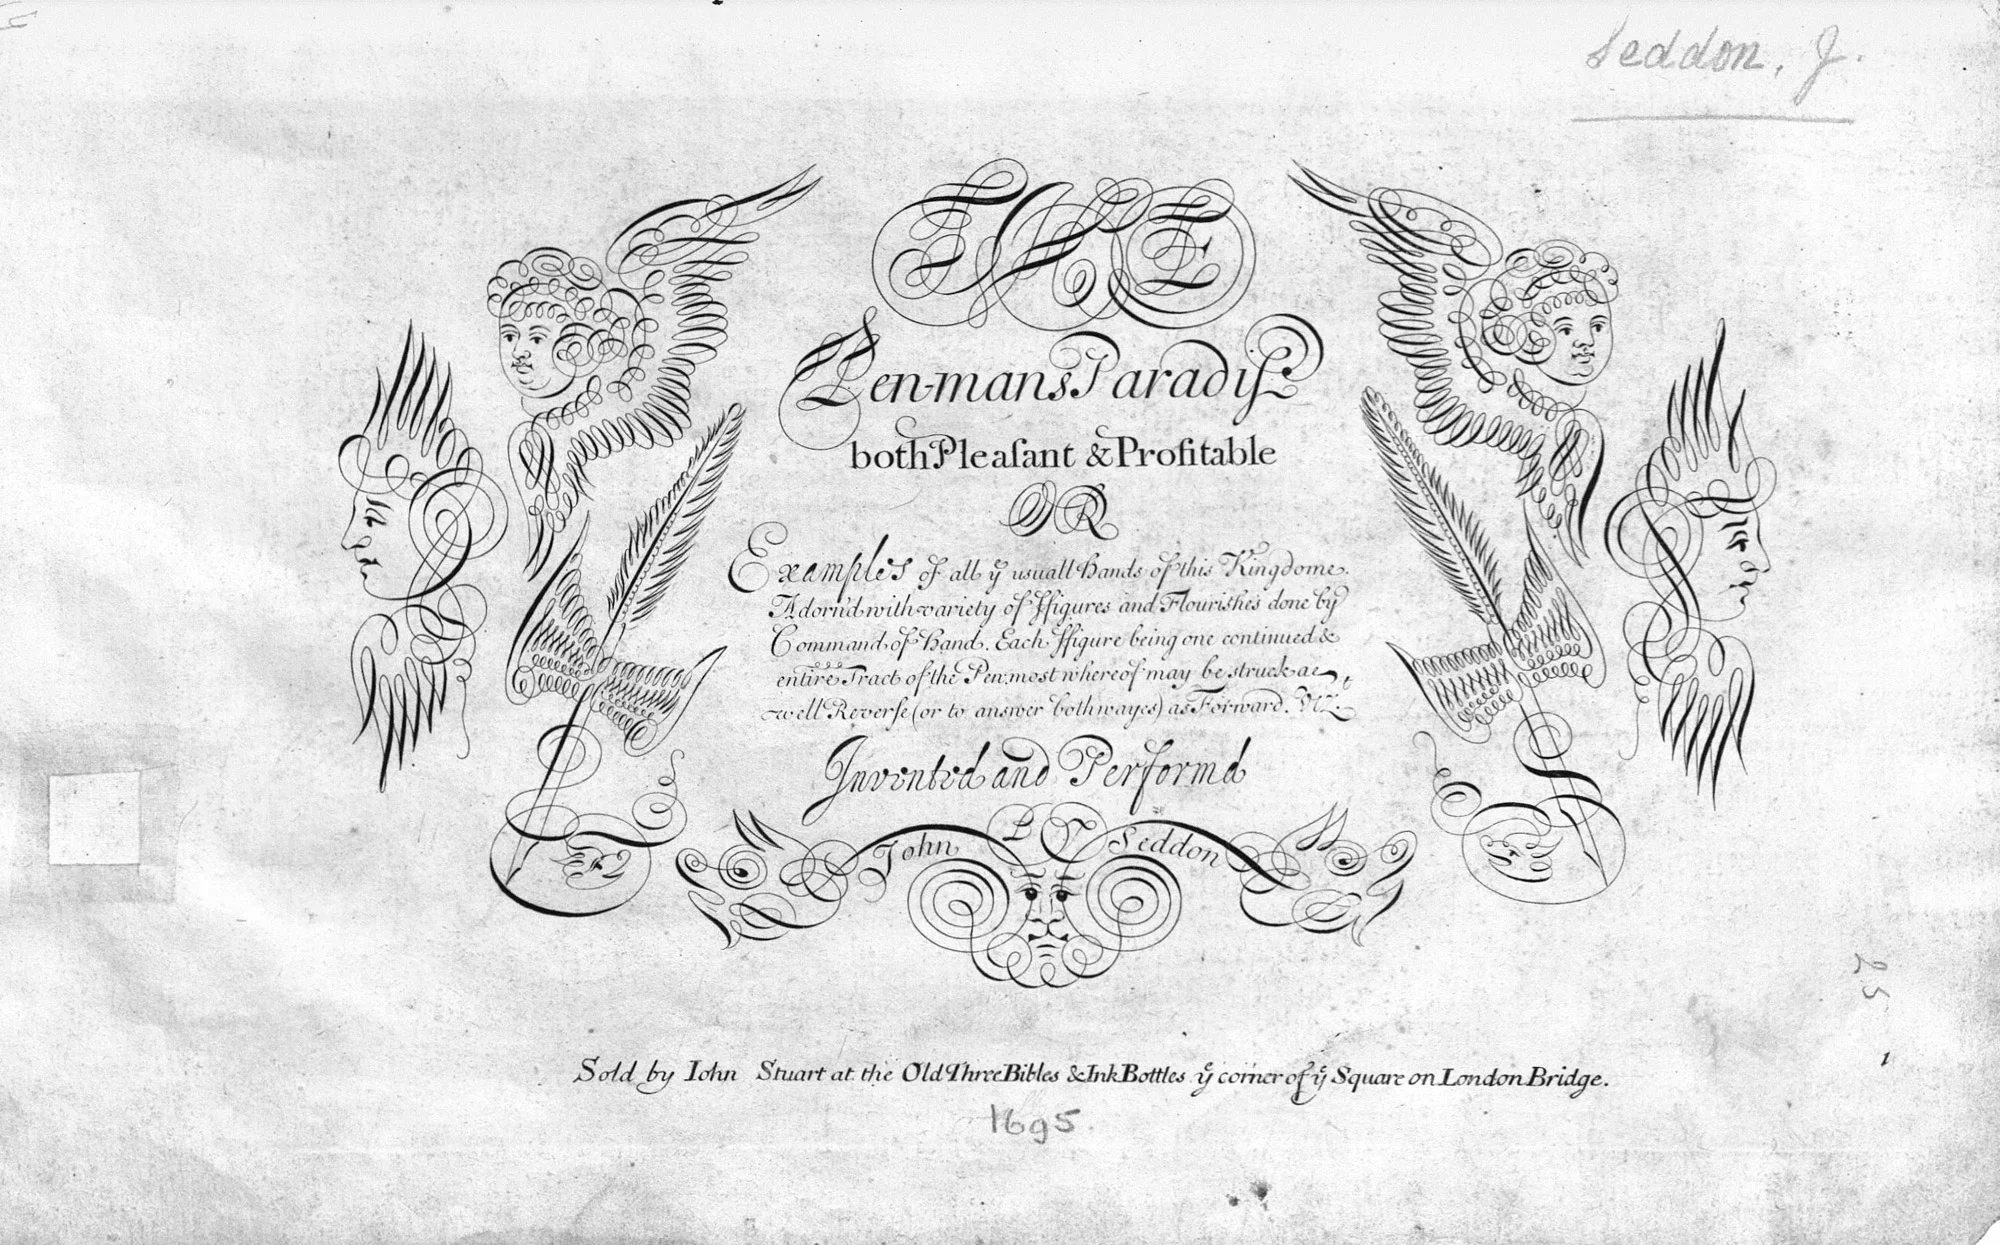 Seddon, J.
THE
Pen-mans Paradis
both Pleasant & Profitable
OR
Examples of all yͤ usuall hands of this Kingdome.
Adorn'd with variety of ffigures and Flourishes done by
Command of hand. Each ffigure being one continued &
entire Tract of the Pen, most whereof may be struck as
well Reverse (or to answer both wayes) as Forward. Viz.
Invented and Perform'd
John BY Seddon
25
1
Sold by Iohn Stuart at the Old Three Bibles & Ink Bottles yͤ corner of yͤ Square on London Bridge.
1695.